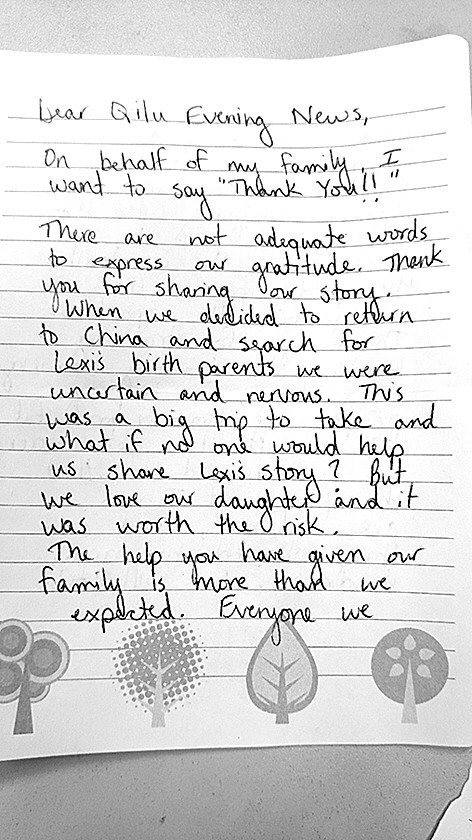 Dear Qilu Evening News,
On behalf of my family, I
want to say "Thank You!!"
There are not adequate words
to express our gratitude. Thank
you for sharing our story.
When we decided to return
to China and search for
Lexi's birth parents we were
uncertain and nervous. This
was a big trip to take and
what if no one would help
us share Lexi's story? But
we love our daughter and it
was worth the risk.
The help you have given our
family is more than we
expected. Everyone we